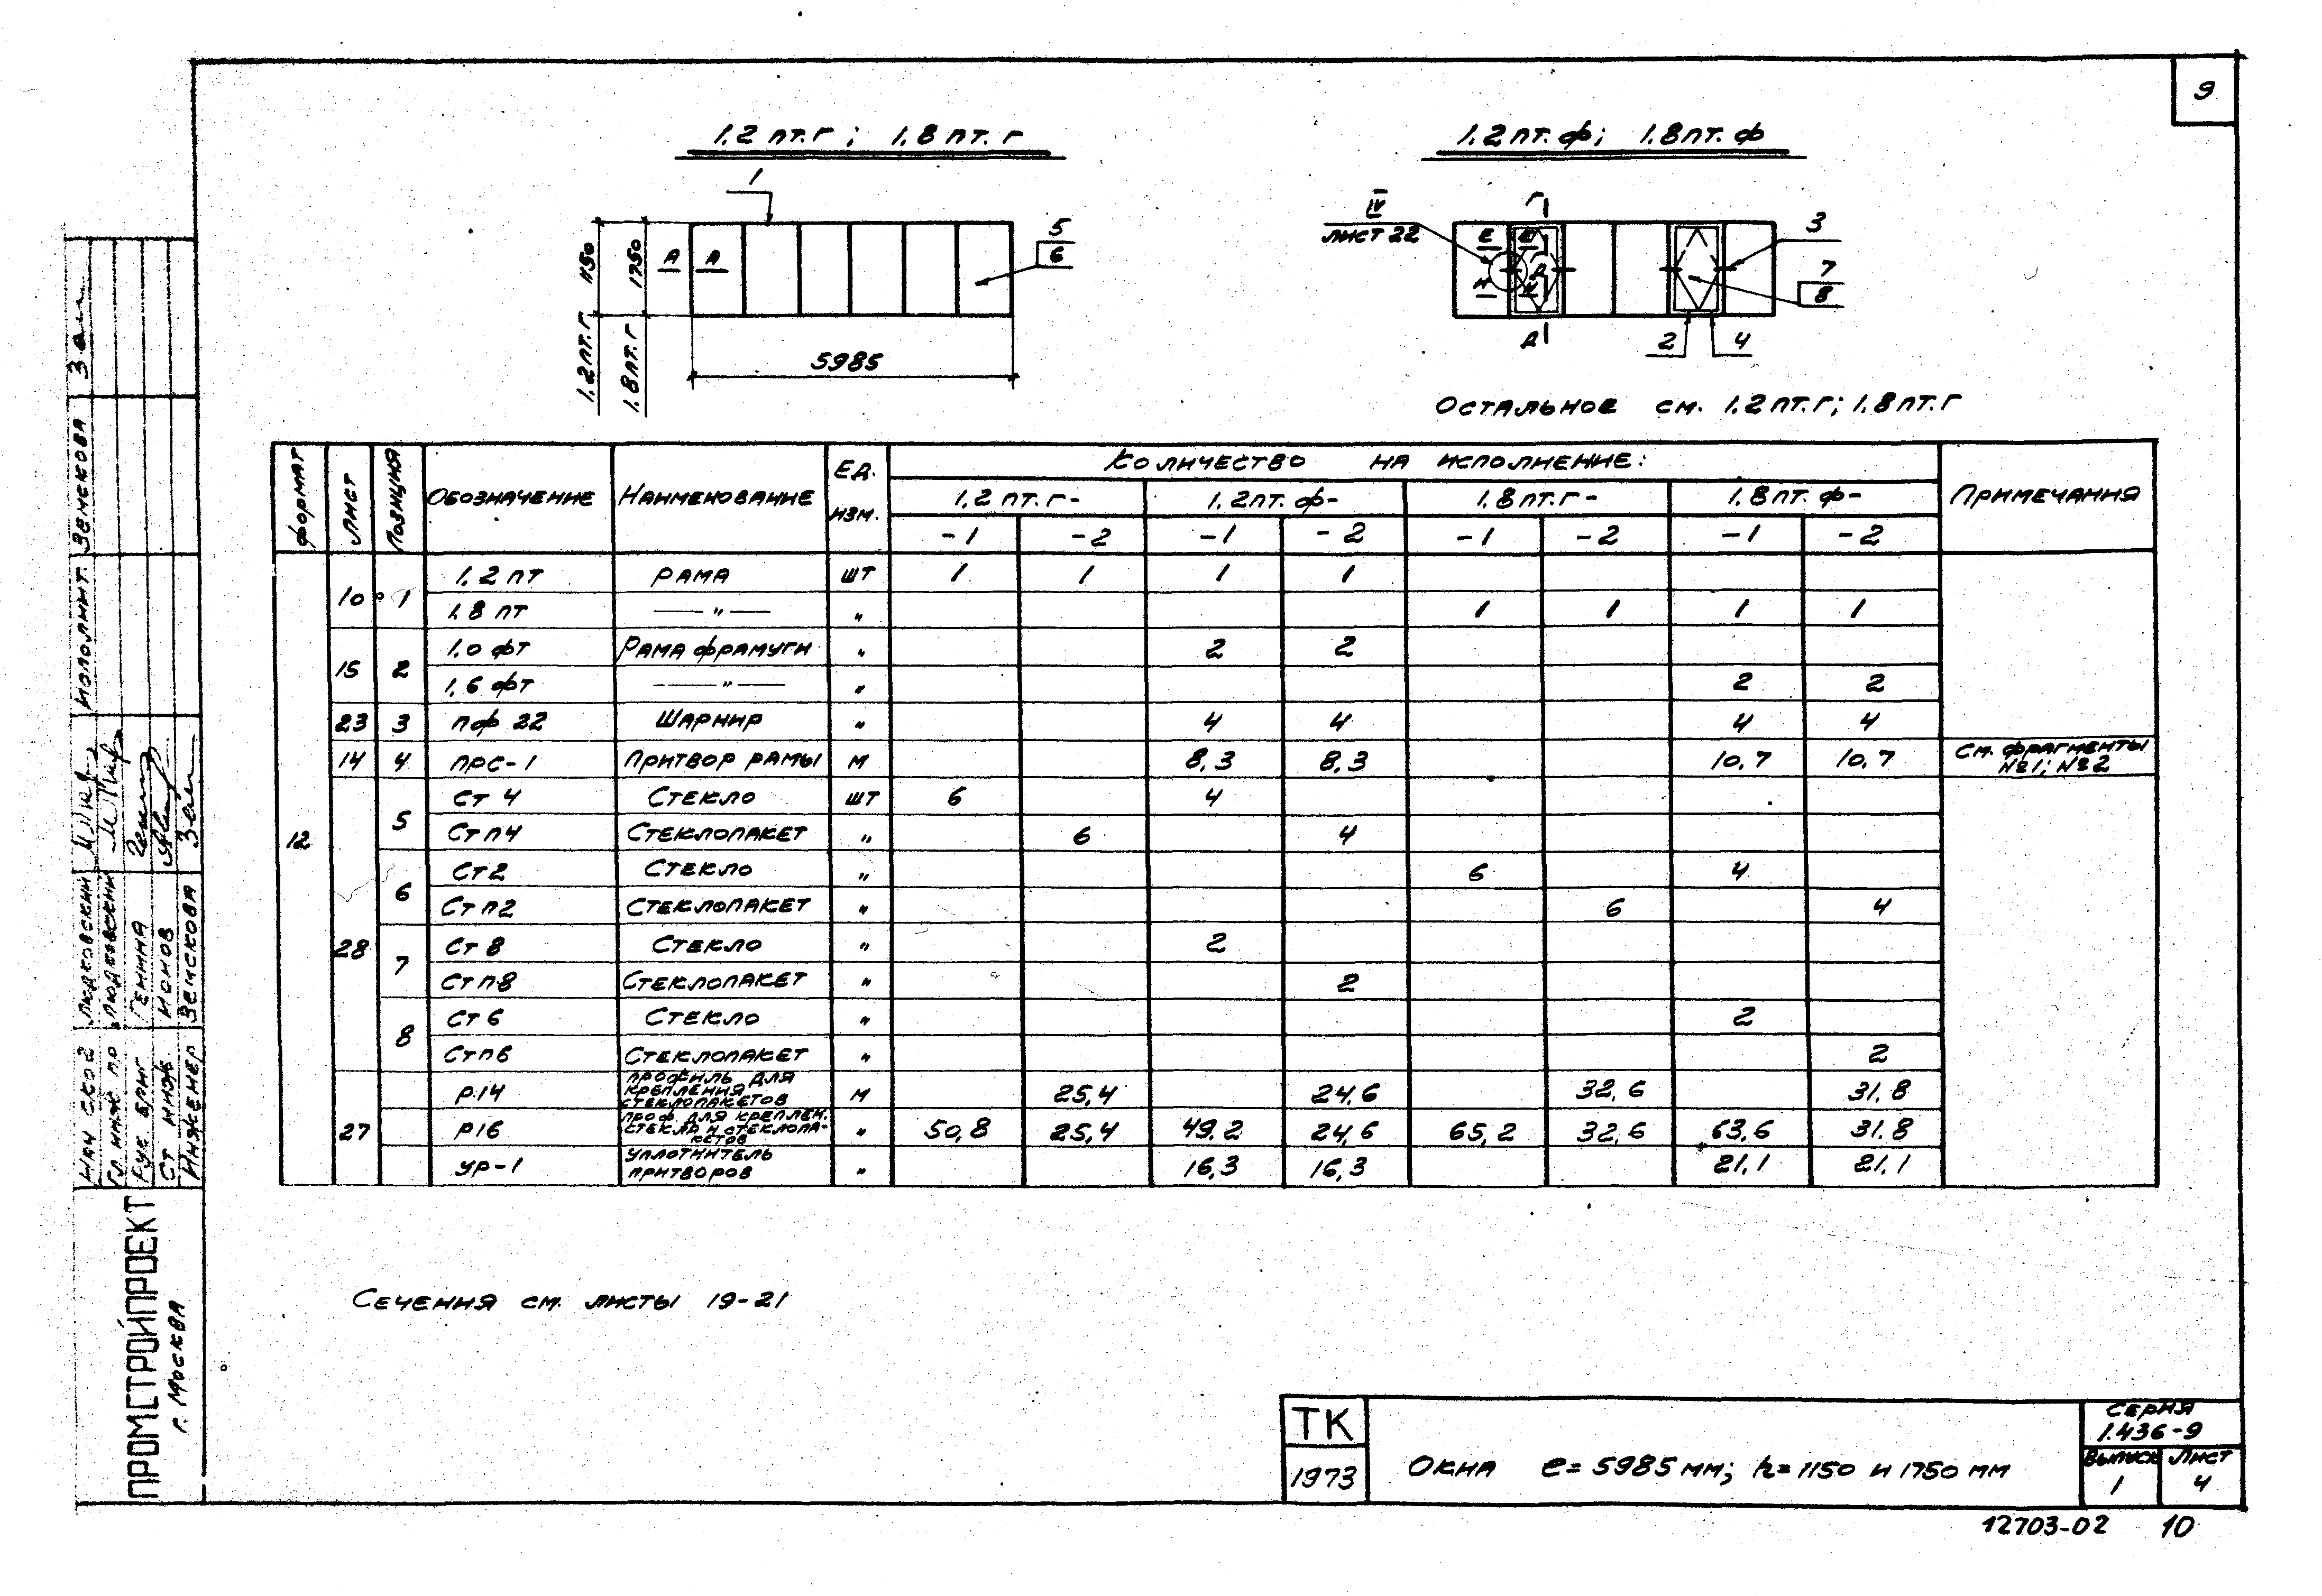 9
1.2 пт. г ; 1.8 пт. г
1.2 пт. ф; 1.8 пт. ф
1
5
6
А А
1150
1750
1.2 пт. г
1.8 пт. г
5985
IV
лист 22
Г
Е Е
Д
3
7
8
2 4
Остальное см. 1.2 пт. г; 1.8 пт. г
Формат | Лист | Позиция | Обозначение | Наименование | Ед. изм. | Количество на исполнение: | Примечания
1.2 пт. г- | 1.2 пт. ф- | 1.8 пт. г- | 1.8 пт. ф-
-1 | -2 | -1 | -2 | -1 | -2 | -1 | -2
12
10 | 1 | 1.2 пт | Рама | шт | 1 | 1 | 1 | 1
1.8 пт | — " — | " | 1 | 1 | 1 | 1
15 | 2 | 1.0 фт | Рама фрамуги | " | 2 | 2
1.6 фт | — " — | " | 2 | 2
23 | 3 | пф 22 | Шарнир | " | 4 | 4 | 4 | 4
14 | 4 | прс-1 | Притвор рамы | м | 8,3 | 8,3 | 10,7 | 10,7 | См. фрагменты №1; №2
28 | 5 | Ст 4 | Стекло | шт | 6 | 4
Стп4 | Стеклопакет | " | 6 | 4
6 | Ст2 | Стекло | " | 6 | 4
Стп2 | Стеклопакет | " | 6 | 4
7 | Ст 8 | Стекло | " | 2
Стп8 | Стеклопакет | " | 2
8 | Ст 6 | Стекло | " | 2
Стп6 | Стеклопакет | " | 2
27 | р14 | профиль для крепления стеклопакетов | м | 25,4 | 24,6 | 32,6 | 31.8
р16 | проф. для креплен. стекла и стеклопакетов | " | 50,8 | 25,4 | 49,2 | 24,6 | 65,2 | 32,6 | 63,6 | 31.8
ур-1 | уплотнитель притворов | " | 16,3 | 16,3 | 21,1 | 21,1
Сечения см. листы 19-21
ТК
1973
Окна e = 5985 мм; h = 1150 и 1750 мм
Серия
1.436-9
Выпуск Лист
1 4
12703-02 10
Исполнит. Земскова
Нач СКО 2 Людковский
Гл инж пр Людковский
Рук бриг Генина
Ст инж Ионов
Инженер Земскова
ПРОМСТРОЙПРОЕКТ
г. Москва